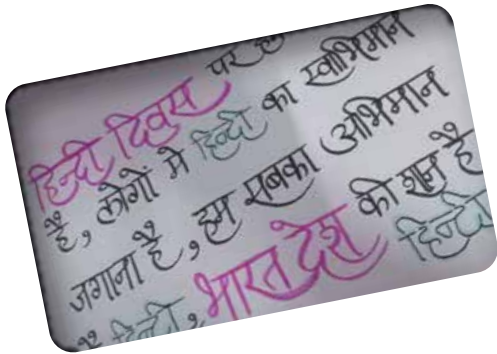 हिन्दी दिवस पर
है, लोगों मे हिन्दी का स्वाभिमान
जगाना है, हम सबका अभिमान
है हिन्दी, भारत देश की शान है
हिन्दी